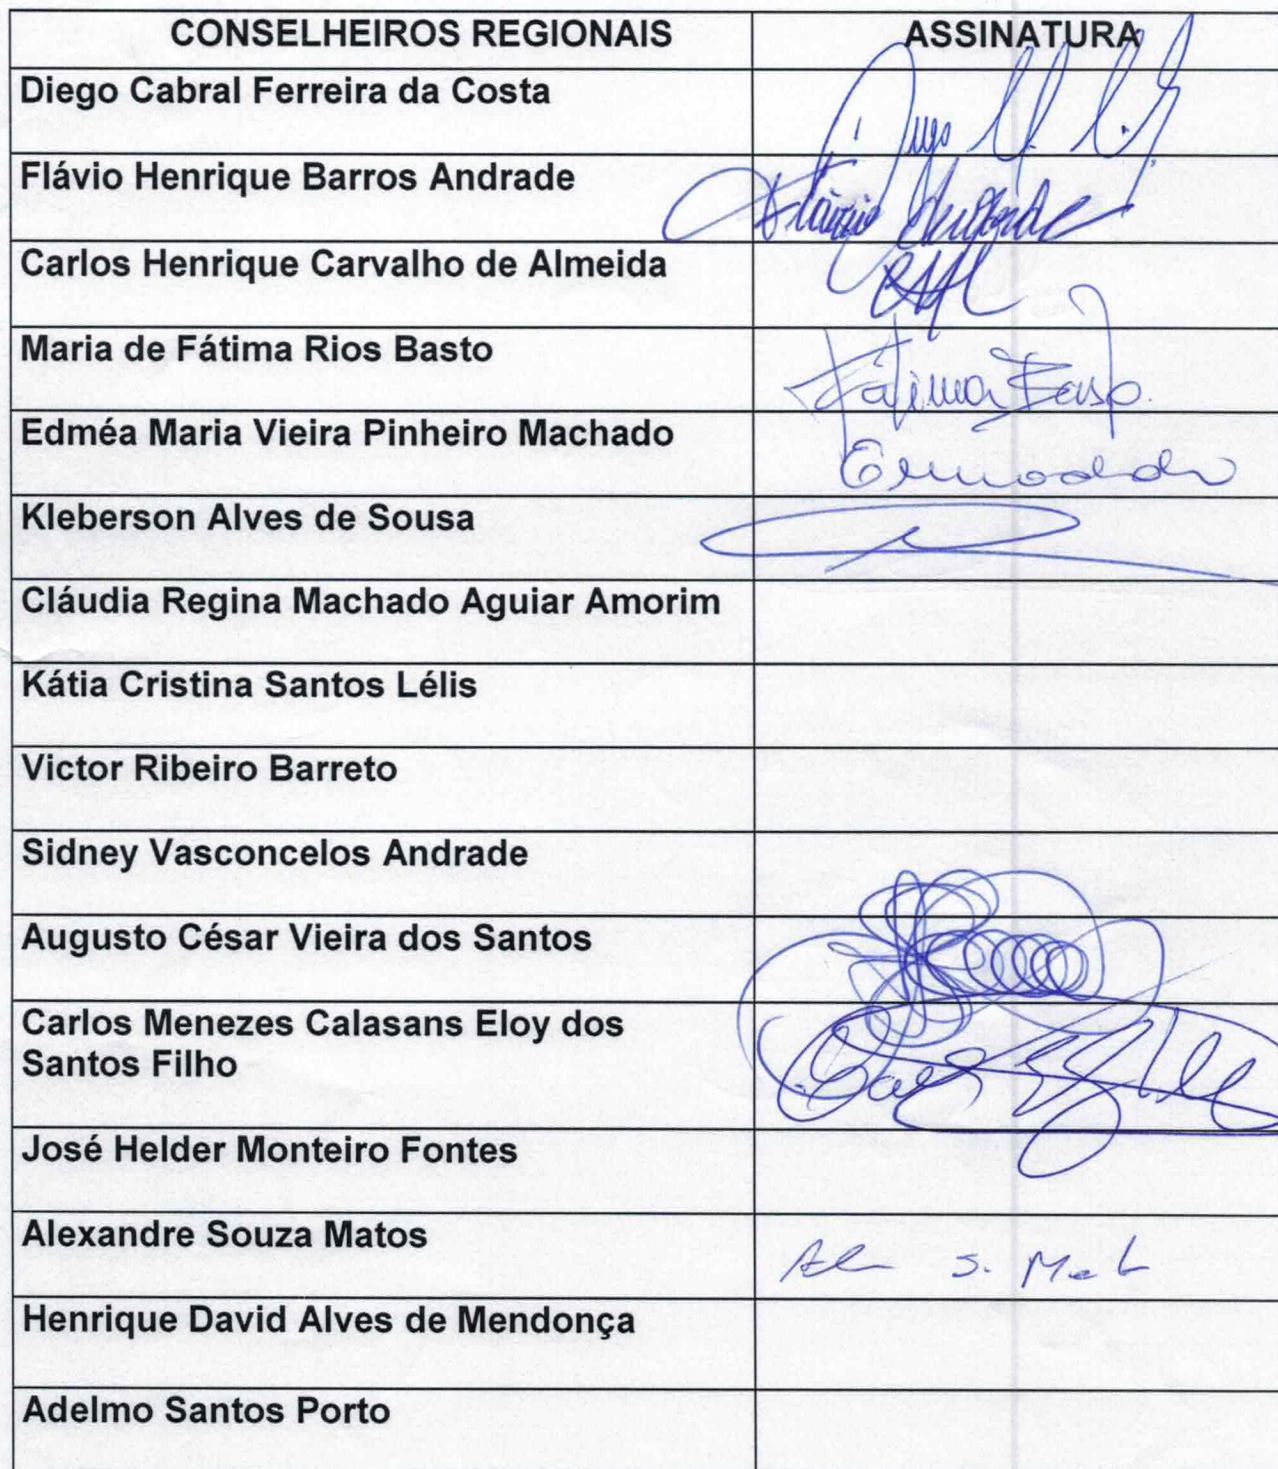 CONSELHEIROS REGIONAIS ASSINATURA
Diego Cabral Ferreira da Costa
Flávio Henrique Barros Andrade
Carlos Henrique Carvalho de Almeida
Maria de Fátima Rios Basto Fátima Basto
Edméa Maria Vieira Pinheiro Machado
Kleberson Alves de Sousa
Cláudia Regina Machado Aguiar Amorim
Kátia Cristina Santos Lélis
Victor Ribeiro Barreto
Sidney Vasconcelos Andrade
Augusto César Vieira dos Santos
Carlos Menezes Calasans Eloy dos
Santos Filho
José Helder Monteiro Fontes
Alexandre Souza Matos
Henrique David Alves de Mendonça
Adelmo Santos Porto